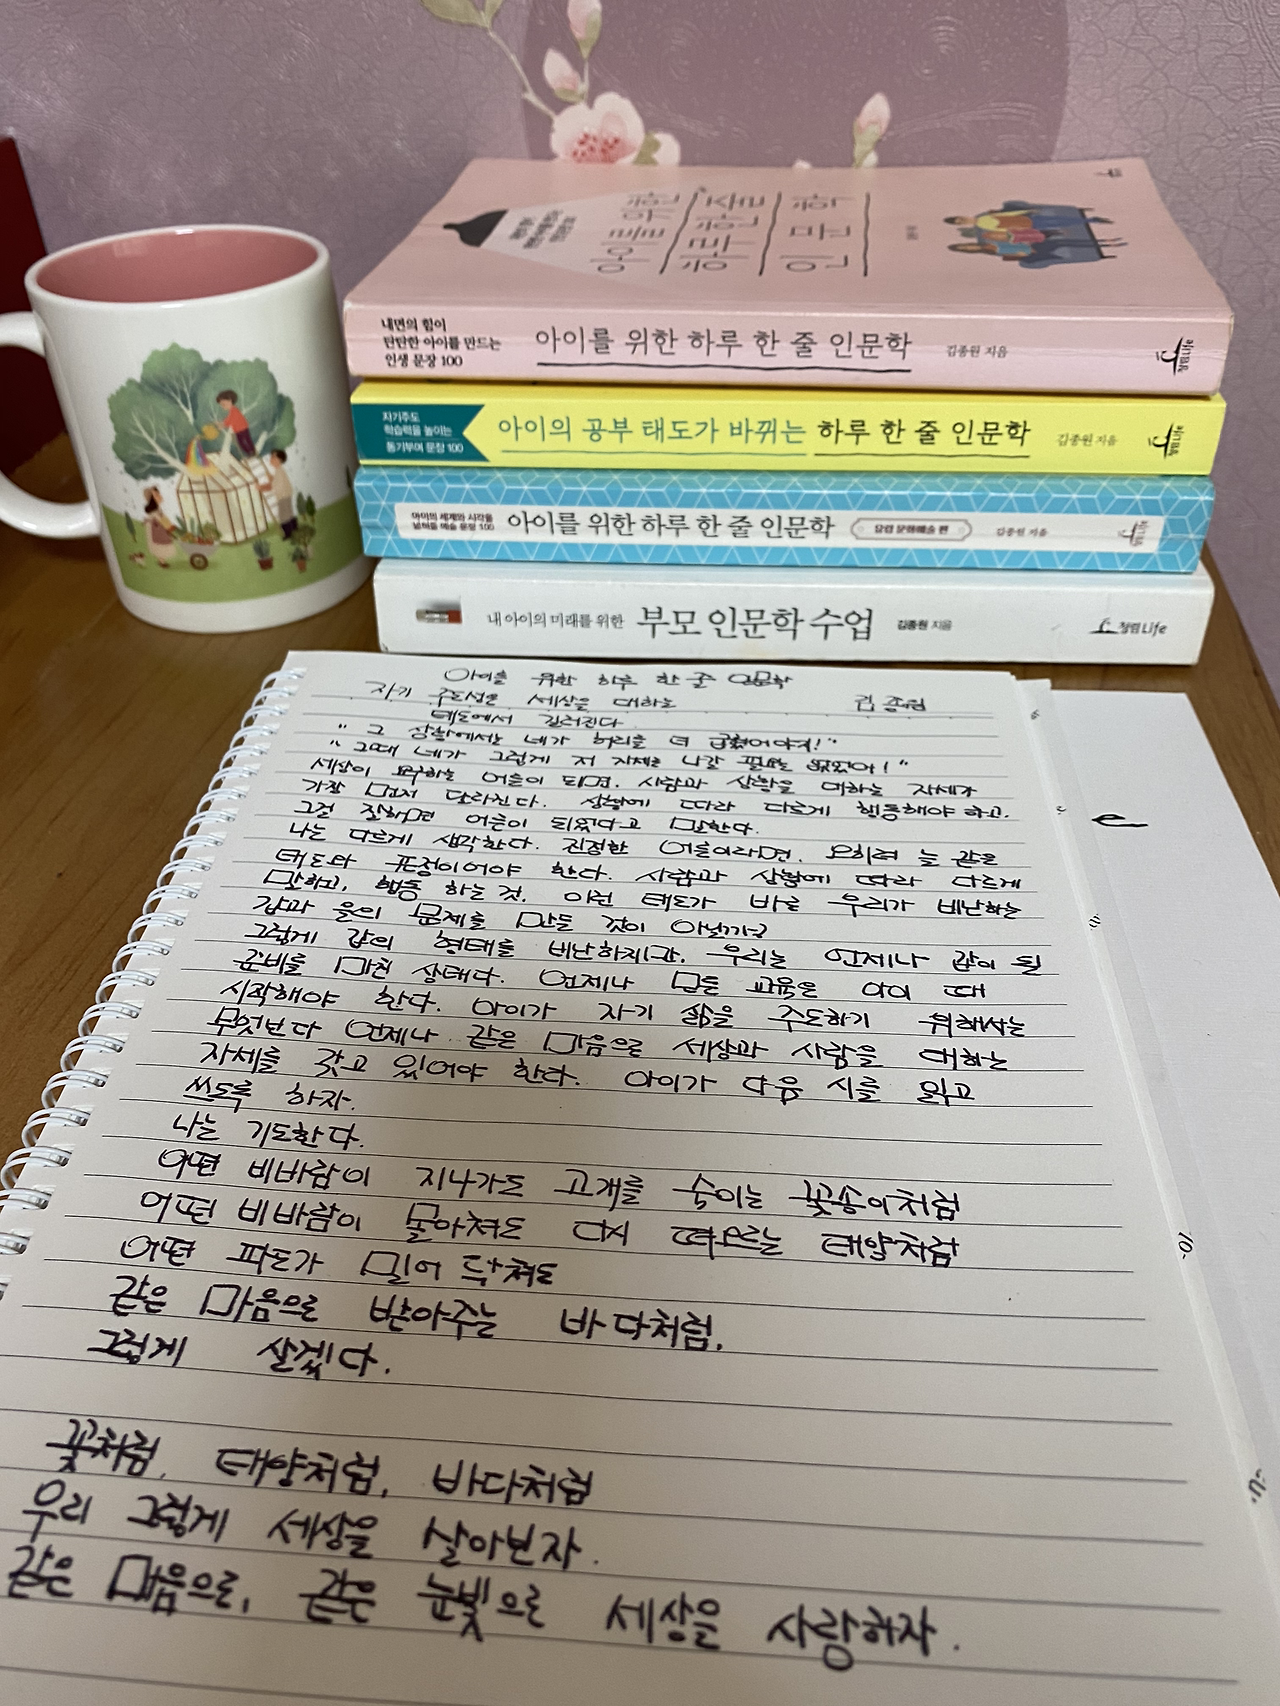 아이를 위한
하루 한 줄
인문학
내면의 힘이
단단한 아이를 만드는
인생 문장 100
아이를 위한 하루 한 줄 인문학
김종원 지음
자기주도
학습력을 높이는
동기부여 문장 100
아이의 공부 태도가 바뀌는 하루 한 줄 인문학
김종원 지음
아이의 세계와 시각을
넓혀줄 예술 문장 100
아이를 위한 하루 한 줄 인문학
유럽 문화예술 편
김종원 지음
내 아이의 미래를 위한 부모 인문학 수업
김종원 지음
청림Life
아이를 위한 하루 한 줄 인문학
자기 주도성은 세상을 대하는 김종원
태도에서 길러진다
"그 상황에서는 네가 허리를 더 굽혔어야지!"
"그때 네가 그렇게 저 자세로 나갈 필요는 없었어!"
세상이 요구하는 어른이 되면, 사람과 상황을 대하는 자세가
가장 먼저 달라진다. 상황에 따라 다르게 행동해야 하고,
그걸 잘하면 어른이 되었다고 말한다.
나는 다르게 생각한다. 진정한 어른이라면, 오히려 늘 같은
태도와 표정이어야 한다. 사람과 상황에 따라 다르게
말하고, 행동 하는 것, 이런 태도가 바로 우리가 비난하는
갑과 을의 문제를 만든 것이 아닐까?
그렇게 갑의 형태를 비난하지만, 우리는 언제나 갑이 될
준비를 마친 상태다. 언제나 모든 교육은 아이 때
시작해야 한다. 아이가 자기 삶을 주도하기 위해서는
무엇보다 언제나 같은 마음으로 세상과 사람을 대하는
자세를 갖고 있어야 한다. 아이가 다음 시를 읽고
쓰도록 하자.
나는 기도한다.
어떤 비바람이 지나가도 고개를 숙이는 꽃송이처럼
어떤 비바람이 몰아쳐도 다시 떠오르는 태양처럼
어떤 파도가 밀어 닥쳐도
같은 마음으로 받아주는 바다처럼,
그렇게 살겠다.
꽃처럼, 태양처럼, 바다처럼
우리 그렇게 세상을 살아보자.
같은 마음으로, 같은 눈빛으로 세상을 사랑하자.